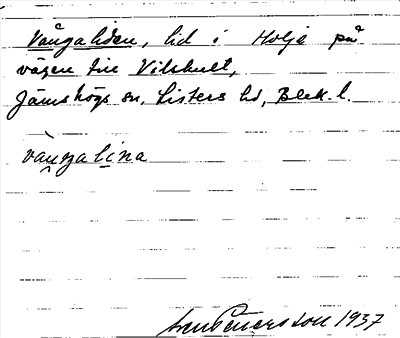 Vångaliden, lid i Holje på
vägen till Vilshult,
Jämshögs sn, Listers hd, Blek. l.
vaŋgalina
Sven Petersson 1937